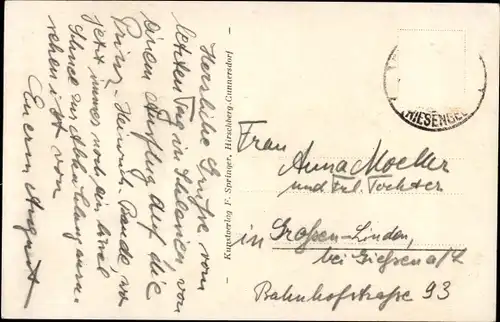 Herzliche Grüße vom
letzten Tag in Schlesien von
einem Ausflug auf die
Prinz-Heinrich-Baude, wo
jetzt immer noch ein wenig
Schnee zur Abkühlung zu
sehen ist von
Eurem August
Kunstverlag F. Springer, Hirschberg-Cunnersdorf
(RIESENGEB
Frau
Anna Moeller
und Frl. Tochter
in Großen-Linden,
bei Gießen a/L
Bahnhofstraße 93